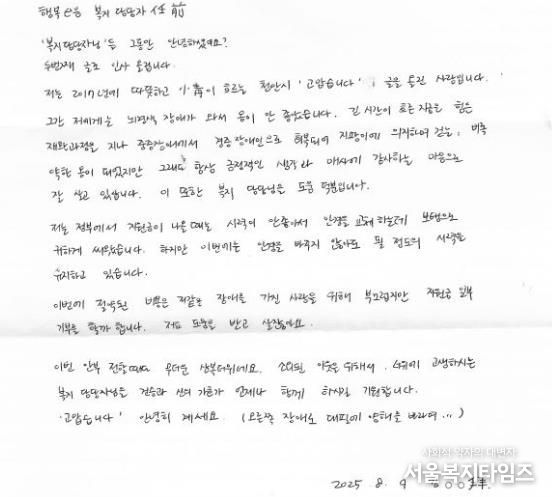 행복e음 복지 담당자 任前
'복지담당자님'들 그동안 안녕하셨어요?
두번째 글로 인사 올립니다.
저는 2017년에 따뜻하고 가 흐르는 천안시 '고맙습니다' 글을 올린 사람입니다.
그간 저에게는 뇌경색 장애가 와서 몸이 안 좋았습니다. 긴 시간이 흐른 지금은 힘든
재활과정을 지나 중증장애에서 경증장애인으로 회복되어 지팡이에 의지하여 걷는, 비록
약한 몸이 되었지만 그래도 항상 긍정적인 생각과 매사에 감사하는 마음으로
잘 살고 있습니다. 이 또한 복지 담당님들 도움 덕분입니다.
저는 정부에서 지원금이 나올때는 시력이 안좋아서 안경을 교체하는데 보탬으로
귀하게 씌웠습니다. 하지만 이번에는 안경을 바꾸지 않아도 될 정도의 시력을
유지하고 있습니다.
이번에 절약된 비용은 저같은 장애를 가진 사람을 위해 부끄럽지만 지원금 일부
기부를 할까 합니다. 저도 도움을 받고 살잖아요.
이번 안부 전할때도 무더운 삼복더위에요. 소외된 이웃을 위해서, 더위에 고생하시는
복지 담당자님들 건승과 신의 가호가 언제나 함께 하시길 기원합니다.
'고맙습니다' 안녕히 계세요. (오른쪽 장애로 대필에 양해를 바라며...)
2025 8. 9 ○○○拜.
사회적 약자의 대변자
서울복지타임즈